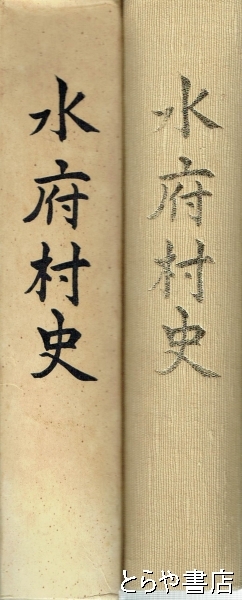 水府村史
水府村史
とらや書店